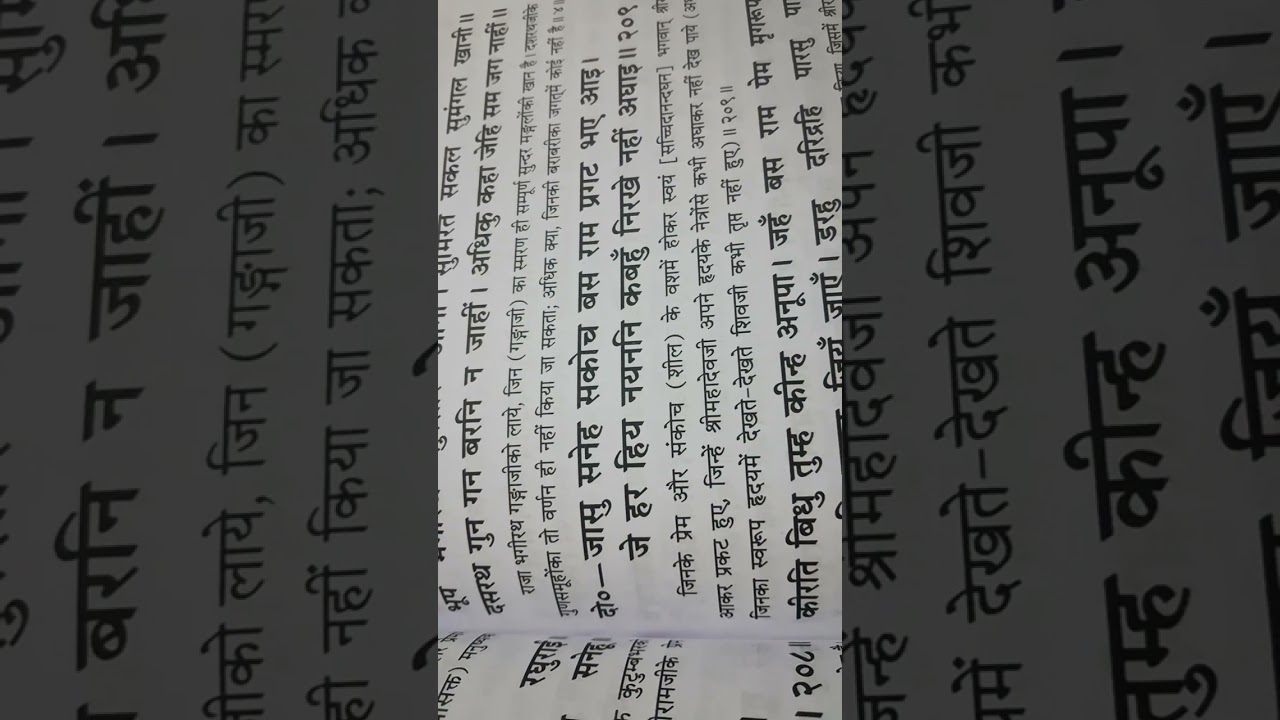 सुमिरत सकल सुमंगल खानी॥
दसरथ गुन गन बरनि न जाहीं। अधिकु कहा जेहि सम जग नाहीं॥
राजा भगीरथ गङ्गाजीको लाये, जिन (गङ्गाजी) का स्मरण ही सम्पूर्ण सुन्दर मङ्गलोंकी खान है। दशरथजीके
गुणसमूहोंका तो वर्णन ही नहीं किया जा सकता; अधिक क्या, जिनकी बराबरीका जगत्‌में कोई नहीं है॥४॥
दो०—जासु सनेह सकोच बस राम प्रगट भए आइ।
जे हर हिय नयननि कबहुँ निरखे नहीं अघाइ॥२०९
जिनके प्रेम और संकोच (शील) के वशमें होकर स्वयं [सच्चिदानन्दघन] भगवान् श्री
आकर प्रकट हुए, जिन्हें श्रीमहादेवजी अपने हृदयके नेत्रोंसे कभी अघाकर नहीं देख पाये (अ
जिनका स्वरूप हृदयमें देखते-देखते शिवजी कभी तृप्त नहीं हुए)॥२०९॥
कीरति बिधु तुम्ह कीन्ह अनूपा। जहँ बस राम पेम मृगरूप
जाएँ। डरहु दरिद्रहि पारसु पा
रघुराई।
सनेहू।
॥२०८॥